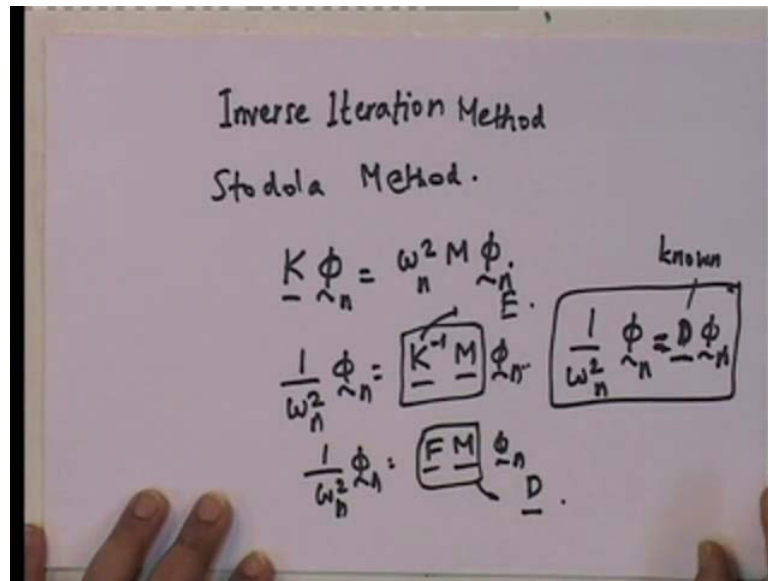 Inverse Iteration Method
Stodola Method.
K ϕn = ωn² M ϕn.
F.
1/ωn² ϕn = K⁻¹ M ϕn.
1/ωn² ϕn = F M ϕn
D.
known
1/ωn² ϕn = D ϕn